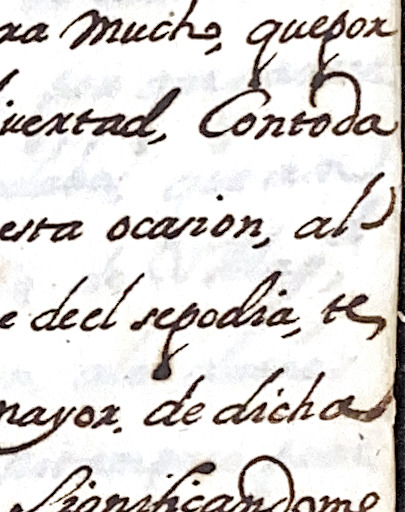 ra mucho, quepor
livertad, Contoda
esta ocasion, al
e deel sepodia, te,
mayor. de dicha
Significandome